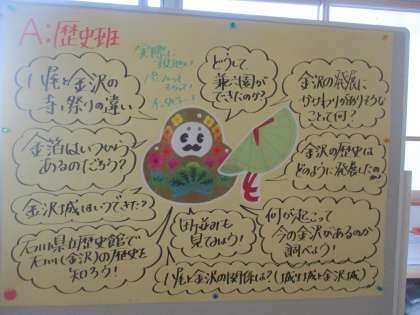 A:歴史班
八尾と金沢の
寺・祭りの違い
どうして
兼六園が
できたのか?
金沢の発展に
かかわりがありそうな
ことって何?
金箔はいつから
あるのだろう?
金沢の歴史は
どのように発展したのか?
金沢城はいつできた?
町並みも
見てみよう!
何が起こって
今の金沢があるのか
調べよう!
石川県立歴史館で
石川(金沢)の歴史を
知ろう!
八尾と金沢の関係は?(城山城と金沢城)